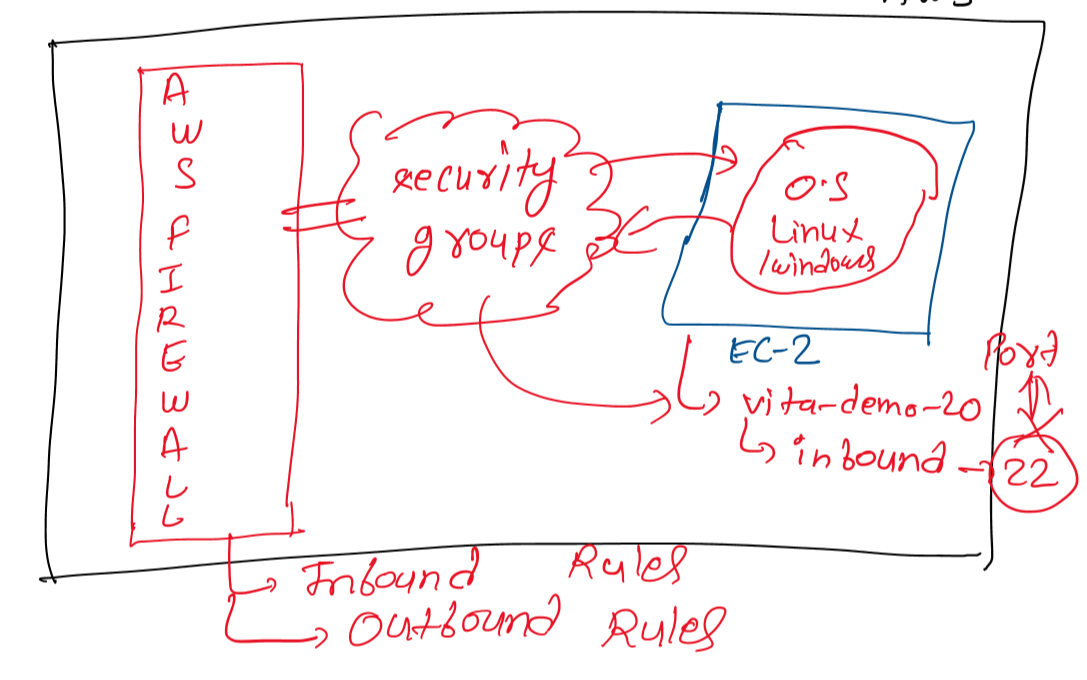 A
W
S
F
I
R
E
W
A
L
L
security
groups
O.S
Linux
/windows
EC-2
Port
vita-demo-20
inbound
22
Inbound Rules
Outbound Rules